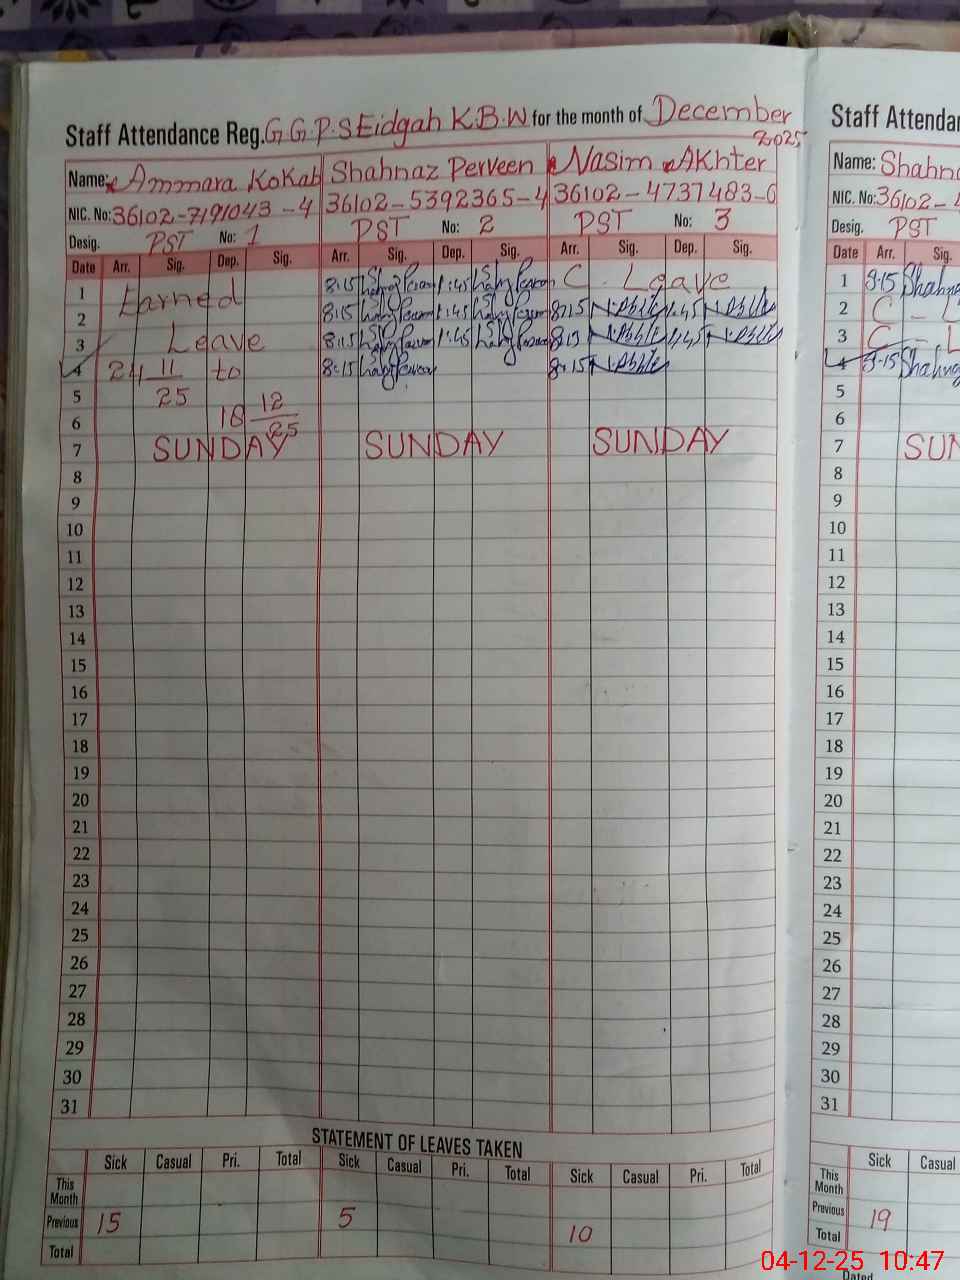 Staff Attendance Reg. G.G.P.S Eidgah K.B.W for the month of December 2025
Name: Ammara Kokab Shahnaz Perveen Nasim Akhter
NIC. No: 36102-7191043-4 36102-5392365-4 36102-4737483-0
Desig. PST No: 1 PST No: 2 PST No: 3
Date Arr. Sig. Dep. Sig. Arr. Sig. Dep. Sig. Arr. Sig. Dep. Sig.
1 Earned 8:15 1:45 C. Leave
2 8:15 1:45 8:15 1:45
3 Leave 8:15 1:45 8:13 1:45
4 24 11 to 8:15 8:15
5 25
6 18 12 25
7 SUNDAY SUNDAY SUNDAY
8
9
10
11
12
13
14
15
16
17
18
19
20
21
22
23
24
25
26
27
28
29
30
31
STATEMENT OF LEAVES TAKEN
Sick Casual Pri. Total Sick Casual Pri. Total Sick Casual Pri. Total
This Month
Previous 15 5 10
Total
Staff Attenda
Name: Shahna
NIC. No: 36102-4
Desig. PST
Date Arr. Sig.
1 8:15 Shahn
2 C - L
3 C - L
4 8:15 Shahn
5
6
7 SUN
8
9
10
11
12
13
14
15
16
17
18
19
20
21
22
23
24
25
26
27
28
29
30
31
Sick Casual
This Month
Previous 19
Total
Dated
04-12-25 10:47